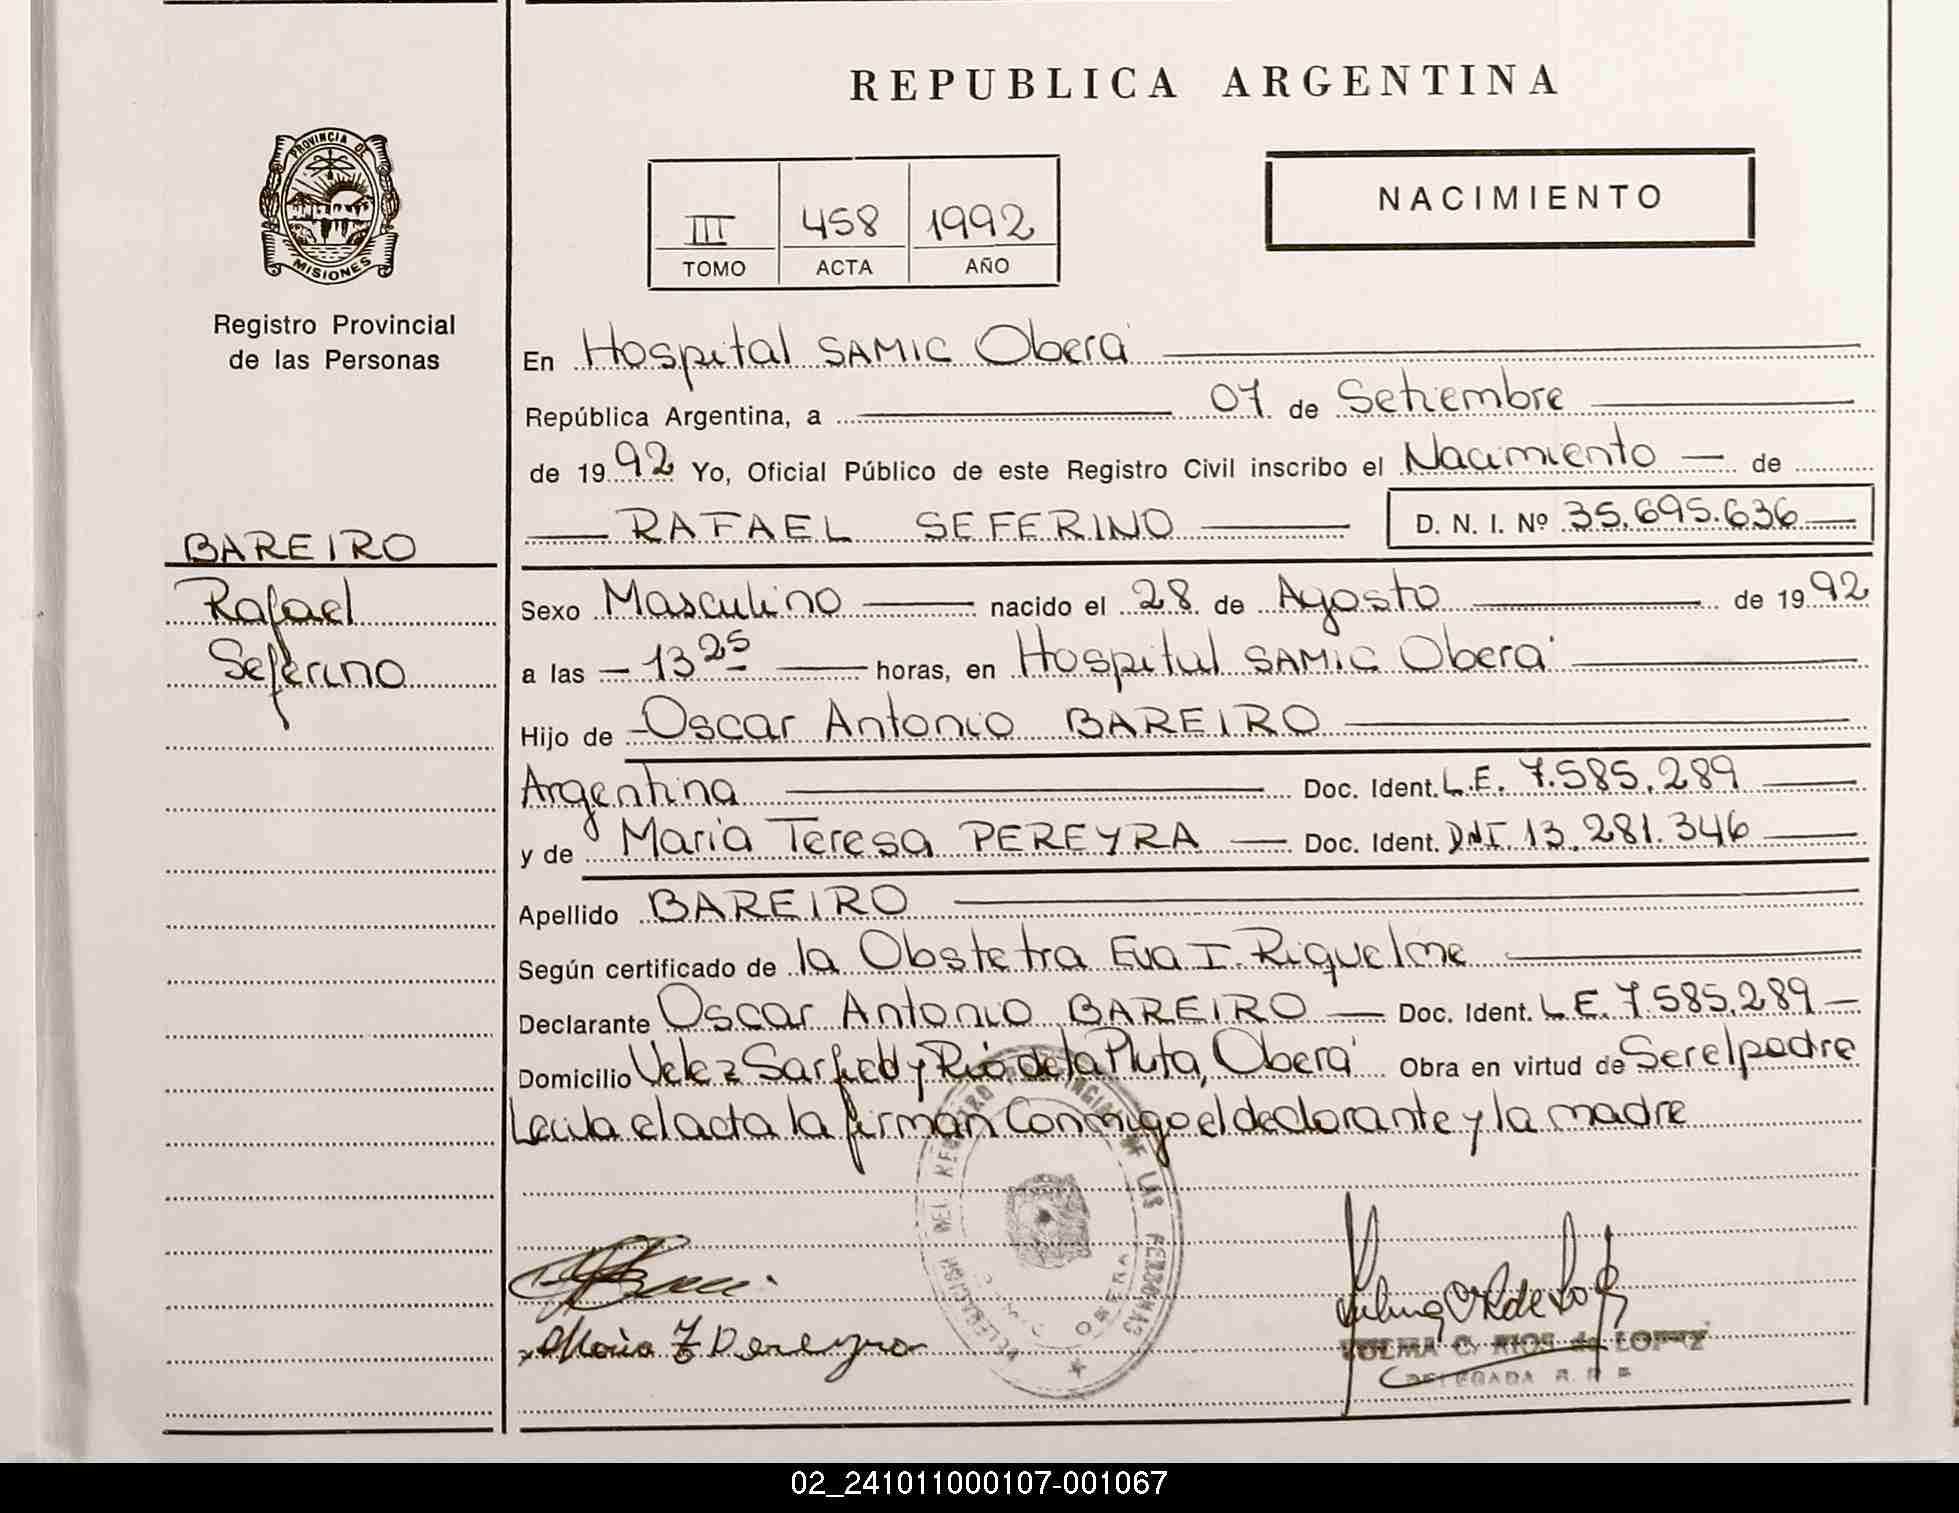 REPUBLICA ARGENTINA
PROVINCIA DE
MISIONES
Registro Provincial
de las Personas
III 458 1992
TOMO ACTA AÑO
NACIMIENTO
En Hospital SAMIC Oberá
República Argentina, a 07 de Setiembre
de 1992 Yo, Oficial Público de este Registro Civil inscribo el Nacimiento — de
RAFAEL SEFERINO D. N. I. Nº 35.695.636
BAREIRO
Rafael
Seferino
Sexo Masculino nacido el 28 de Agosto de 1992
a las - 13 25 horas, en Hospital SAMIC Oberá
Hijo de Oscar Antonio BAREIRO
Argentina Doc. Ident. L.E. 7.585.289
y de Maria Teresa PEREYRA — Doc. Ident. DNI 13.281.346
Apellido BAREIRO
Según certificado de la Obstetra Eva I. Riquelme
Declarante Oscar Antonio BAREIRO — Doc. Ident. L.E. 7.585.289
Domicilio Velez Sarfied y Rio de la Plata, Oberá Obra en virtud de Ser el padre
Leida el acta la firman Conmigo el declarante y la madre
DELEGACION DEL REGISTRO PROVINCIAL DE LAS PERSONAS
OBERA
Maria T Pereyra
VOLMA C. RIOS de LOPEZ
DELEGADA R. P. P.
02_241011000107-001067